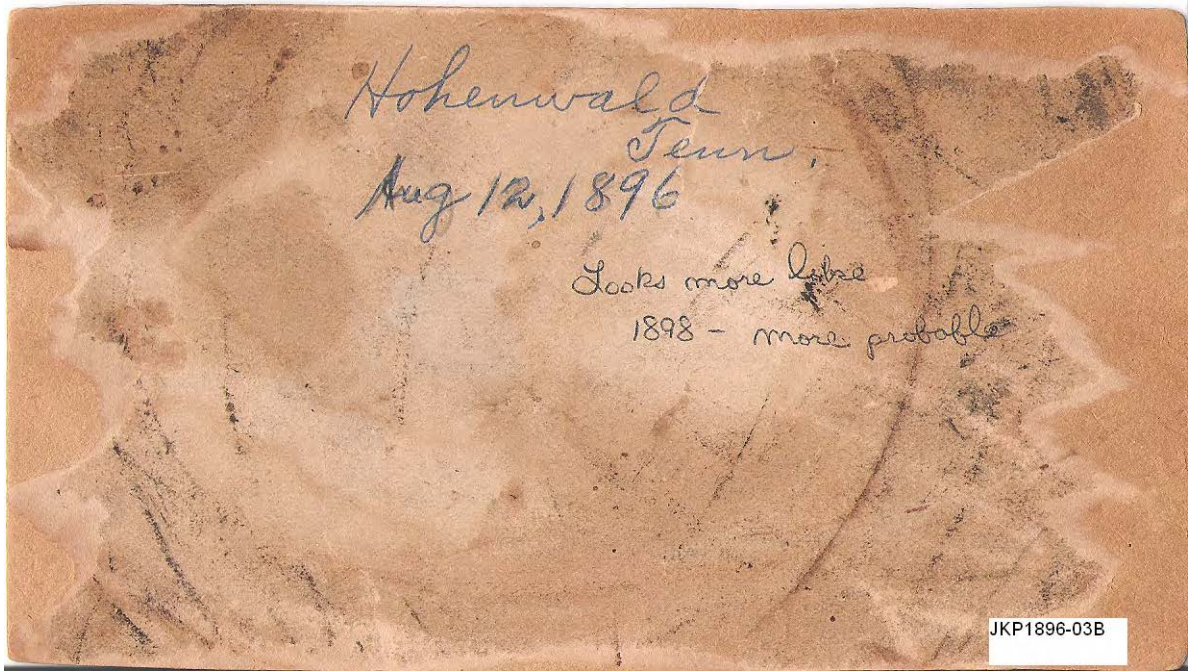 Hohenwald
Tenn.
Aug 12, 1896
Looks more like
1898 - more probable
JKP1896-03B